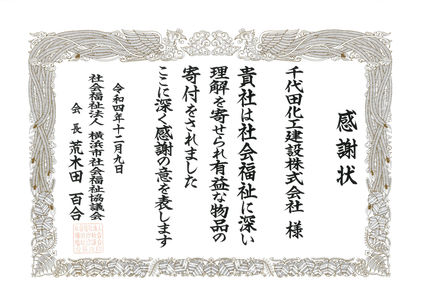 感謝状
千代田化工建設株式会社 様
貴社は社会福祉に深い
理解を寄せられ有益な物品の
寄付をされました
ここに深く感謝の意を表します
令和四年十二月九日
社会福祉法人 横浜市社会福祉協議会
会長 荒木田 百合